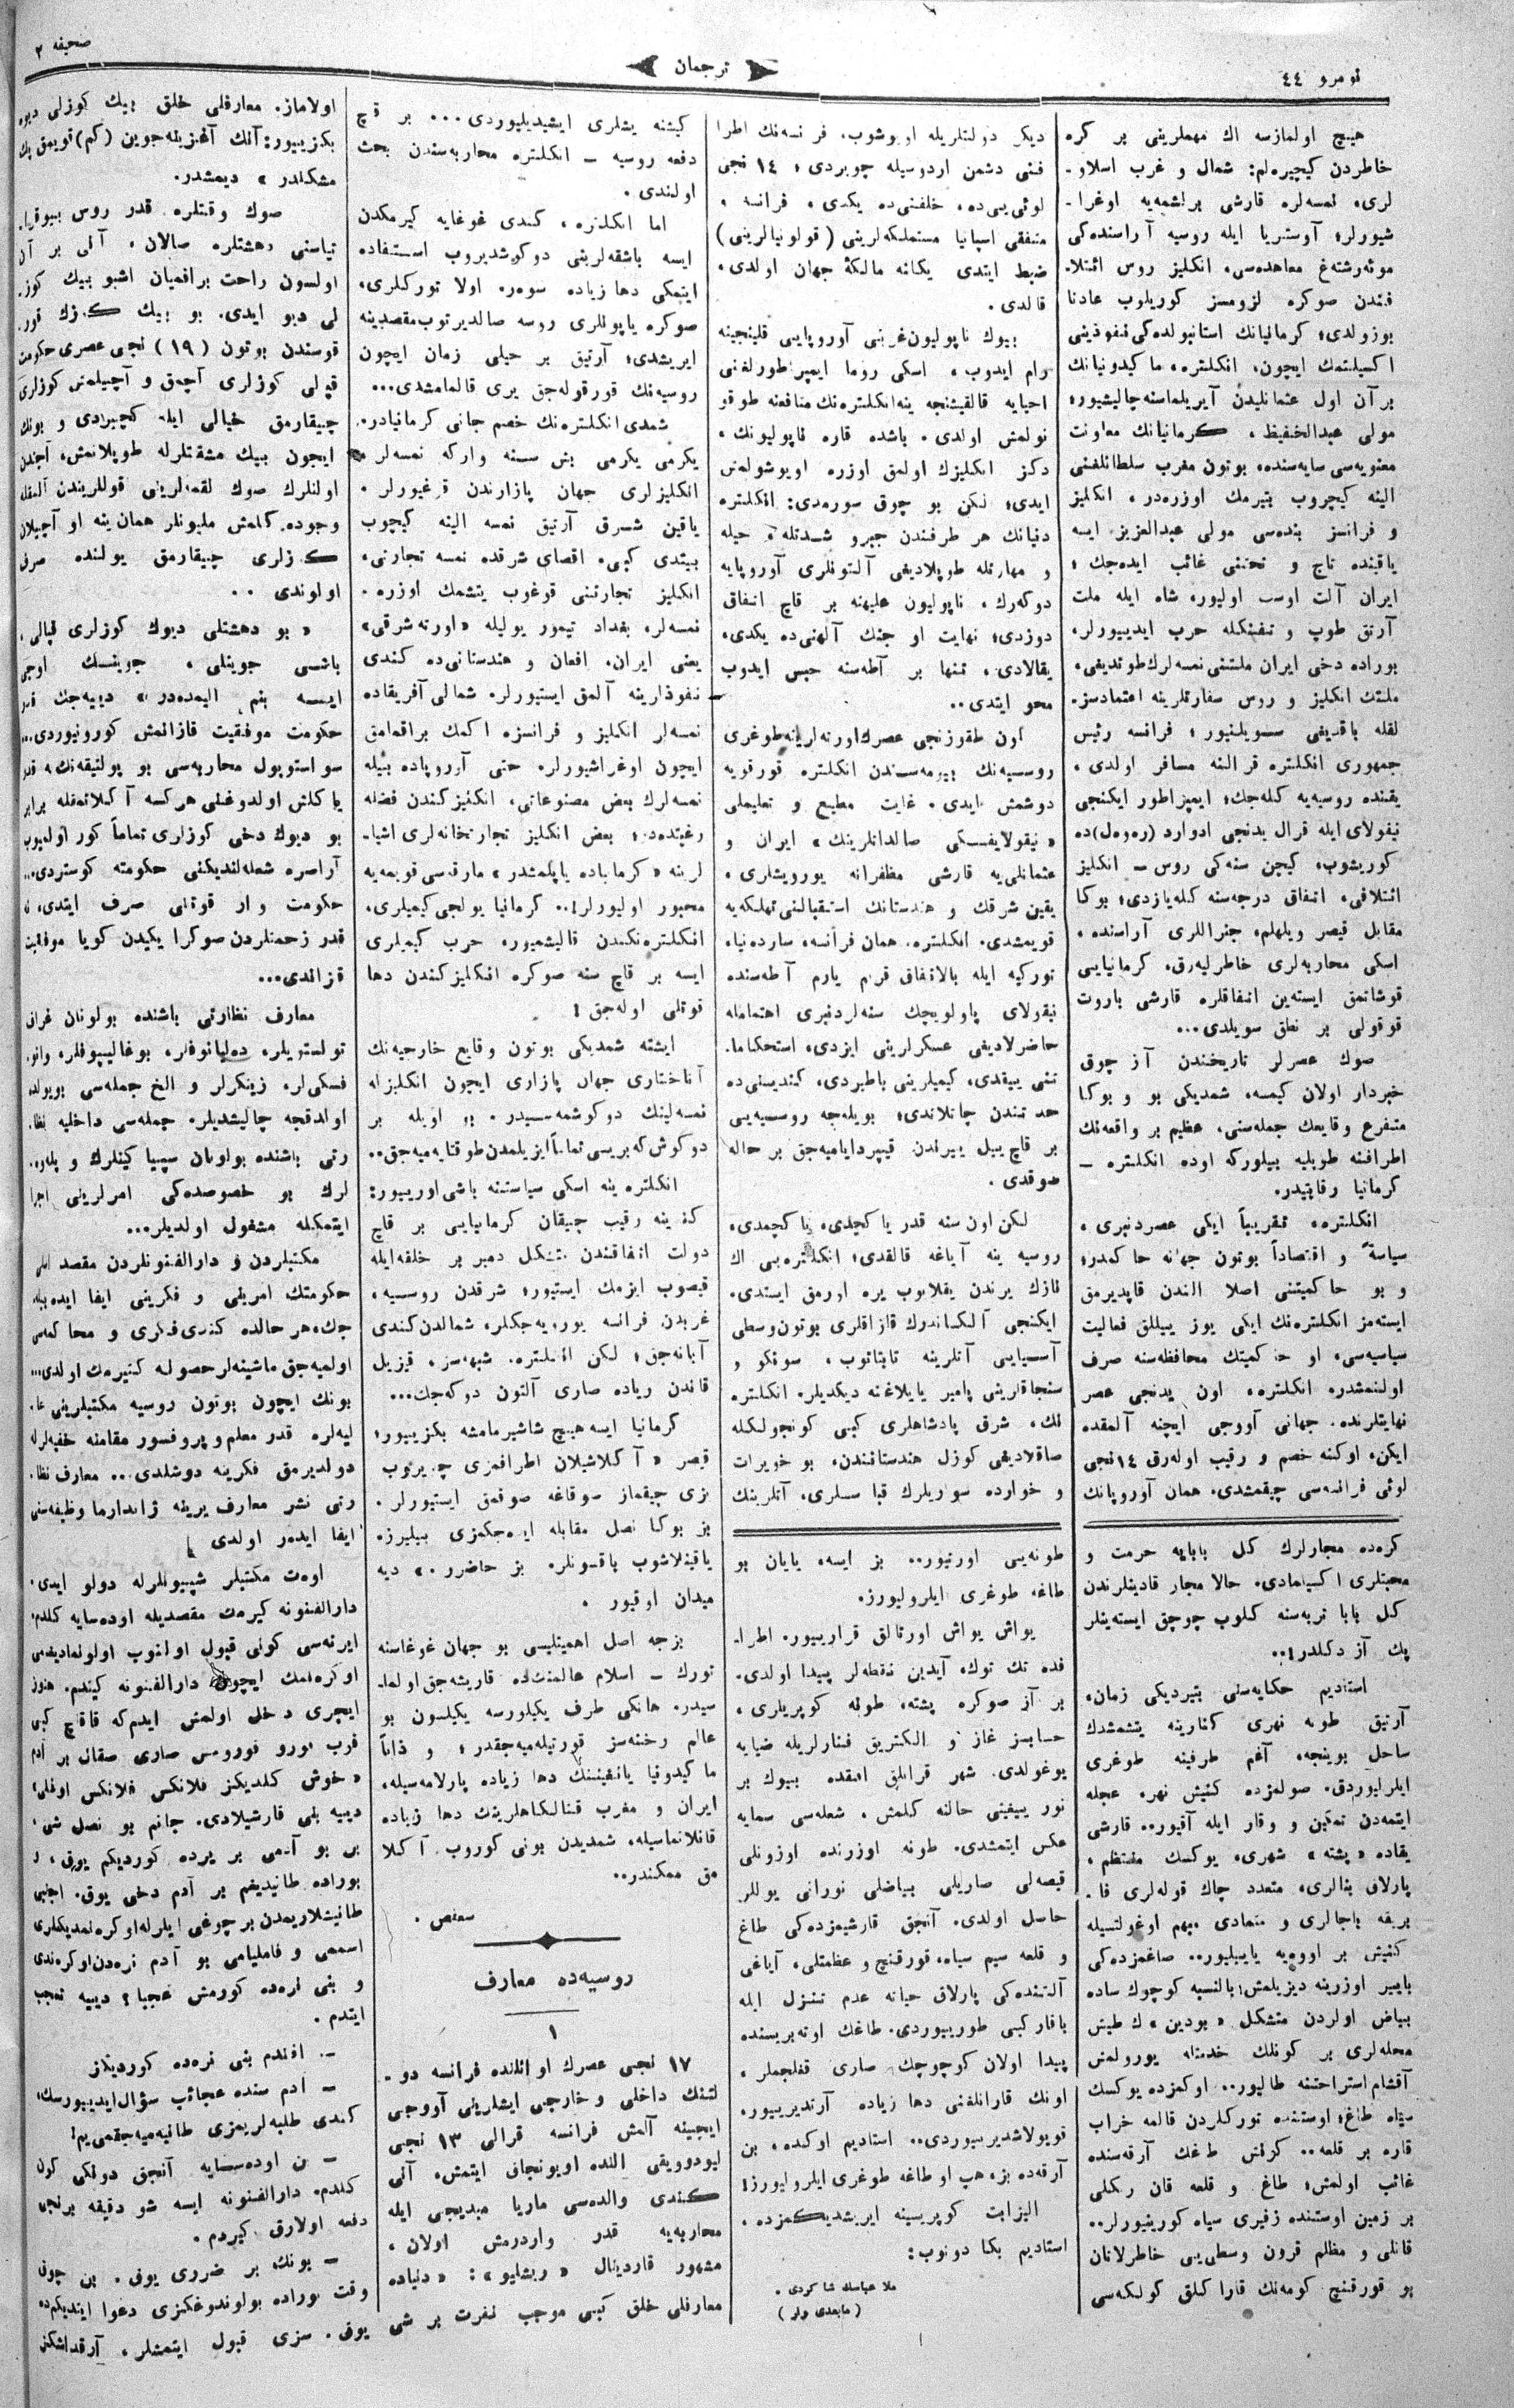 نومرو ٤٤
ترجمان
صحیفه ٢
هیچ اولمازسه اك مهملرینی بر كره
خاطردن كیچیره‌لم: شمال و غرب اسلاو-
لری، نمسه‌لره قارشی برلشمه‌یه اوغرا-
شیورلر؛ آوستریا ایله روسیه آراسنده‌كی
معاهده‌سی، انكلیز روس ائتلا-
فندن صوكره لزومسز كوریلوب عادتا
بوزولدی؛ كرمانیانك استانبولده‌كی نفوذینی
اكسیلتمك ایچون، انكلتره، ماكیدونیانك
بر آن اول عثمانلیدن آیریلماسنه چالیشیور؛
مولی عبدالحفیظ، كرمانیانك معاونت
معنویه‌سی سایه‌سنده، بوتون مغرب سلطانلغنی
الینه كیچروب بتیرمك اوزره‌در، انكلیز
و فرانسز بنده‌سی مولی عبدالعزیز ایسه
یاقینده تاج و تختنی غائب ایده‌جك؛
ایران آلت اوست اولیور، شاه ایله ملت
آرتق طوپ و تفنكله حرب ایدییورلر،
بوراده دخی ایران ملتنی نمسه‌لرك طوتدیغی،
ملتك انكلیز و روس سفارتلرینه اعتمادسز-
لقله باقدیغی سویلنیور؛ فرانسه رئیس
جمهوری انكلتره قرالنه مسافر اولدی،
یقنده روسیه‌یه كله‌جك؛ ایمپراطور ایكنجی
نیقولای ایله قرال یدنجی ادوارد (ره‌وه‌ل)ده
كوریشوب، كیچن سنه‌كی روس – انكلیز
ائتلافی، اتفاق درجه‌سنه كله‌یازدی؛ بوكا
مقابل قیصر ویلهلم، جنراللری آراسنده،
اسكی محاربه‌لری خاطرلیه‌رق، كرمانیایی
قوشاتمق ایسته‌ین اتفاقلره قارشی باروت
قوقولی بر نطق سویلدی...
صوك عصرلر تاریخندن آز چوق
خبردار اولان كیمسه، شمدیكی بو و بوكا
متفرع وقایعك جمله‌سنی، عظیم بر واقعه‌نك
اطرافنه طوپلیه بیلوركه اوده انكلتره –
كرمانیا رقابتیدر.
انكلتره، تقریباً ایكی عصردنبری،
سیاسةً و اقتصاداً بوتون جهانه حاكمدر؛
و بو حاكمیتنی اصلا الندن قاپدیرمق
ایسته‌مز انكلتره‌نك ایكی یوز ییللق فعالیت
سیاسیه‌سی، او حاكمیتك محافظه‌سنه صرف
اولنمشدر. انكلتره، اون یدنجی عصر
نهایتلرنده، جهانی آووجی ایچنه آلمقده
ایكن، اوكنه خصم و رقیب اوله‌رق ١٤نجی
لوئی فرانسه‌سی چیقمشدی. همان آوروپانك
دیكر دولتلریله اویوشوب، فرانسه‌نك اطرا
فنی دشمن اردوسیله چویردی؛ ١٤ نجی
لوئی‌یی‌ده، خلفنی‌ده یكدی، فرانسه،
متفقی اسپانیا مستملكه‌لرینی (قولونیالرینی)
ضبط ایتدی یكانه مالكهٔ جهان اولدی،
قالدی.
بیوك ناپولیون غربی آوروپایی قلینجینه
رام ایدوب، اسكی روما ایمپراطورلغنی
احیایه قالقیشنجه ینه انكلتره‌نك منافعنه طوقو
نولمش اولدی، باشده قاره ناپولیونك،
دكز انكلیزك اولمق اوزره اویوشولمش
ایدی؛ لكن بو چوق سورمدی: انكلتره
دنیانك هر طرفندن جبرو شدتله، حیله
و مهارتله طوپلادیغی آلتونلری آوروپایه
دوكه‌رك، ناپولیون علیهنه بر قاچ اتفاق
دوزدی؛ نهایت او جنك آلهنی‌ده یكدی،
یقالادی، تنها بر آطه‌سنه حبس ایدوب
محو ایتدی..
اون طقوزنجی عصرك اورته‌لرینه طوغری
روسیه‌نك بیومه‌سندن انكلتره قورقویه
دوشمش ایدی. غایت مطیع و تعلیملی
«نیقولایفسكی صالداتلرینك» ایران و
عثمانلی‌یه قارشی مظفرانه یورویشلری،
یقین شرقك و هندستانك استقبالنی تهلكه‌یه
قویمشدی. انكلتره، همان فرانسه، ساردنیا،
توركیه ایله بالاتفاق قرم یارم آطه‌سنده
نیقولای پاولویچك سنه‌لردنبری اهتمامله
حاضرلادیغی عسكرلرینی ایزدی، استحكاما-
تنی ییقدی، كیمیلرینی باطیردی، كندیسنی‌ده
حدتندن چاتلاتدی؛ بویله‌جه روسیه‌یی
بر قاچ ییل ییرلدن قیپردایامیه‌جق بر حاله
صوقدی.
لكن اون سنه قدر یا كچدی، یا كچمدی،
روسیه ینه آیاغه قالقدی؛ انكلتره‌یی اك
نازك یرندن یقلایوب یره اورمق ایستدی.
ایكنجی آلكساندرك قازاقلری بوتون وسطی
آسیایی آتلرینه تاپتاتوب، سونكو و
سنجاقلرینی پامیر یایلاغنه دیكدیلر. انكلتره
نك، شرق پادشاهلری كبی كونجولكله
صاقلادیغی كوزل هندستانندن، بو خویرات
و خوارده سواریلرك قبا سسلری، آتلرینك
كیشنه یشلری ایشیدیلیوردی... بر قاچ
دفعه روسیه – انكلتره محاربه‌سندن بحث
اولندی.
اما انكلتره، كندی غوغایه كیرمكدن
ایسه باشقه‌لرینی دوكوشدیروب استفاده
ایتمكی دها زیاده سوه‌ر. اولا توركلری،
صوكره یاپونلری روسه صالدیرتوب مقصدینه
ایریشدی؛ آرتیق بر خیلی زمان ایچون
روسیه‌نك قورقوله‌جق یری قالمامشدی...
شمدی انكلتره‌نك خصم جانی كرمانیادر.
یكرمی یكرمی بش سنه واركه نمسه‌لر،
انكلیزلری جهان پازارندن قوغیورلر.
یاقین شرق آرتیق نمسه الینه كیچوب
بیتدی كبی، اقصای شرقده نمسه تجارتی،
انكلیز تجارتنی قوغوب یتشمك اوزره.
نمسه‌لر، بغداد تیمور یولیله «اورته شرقی»
یعنی ایران، افغان و هندستانی‌ده كندی
نفوذلرینه آلمق ایستیورلر. شمالی آفریقاده
نمسه‌لر انكلیز و فرانسزه اكمك براقمامق
ایچون اوغراشیورلر. حتی آوروپاده بیله
نمسه‌لرك بعض مصنوعاتی، انكلیزكندن فضله
رغبتده‌در؛ بعض انكلیز تجارتخانه‌لری اشیا-
لرینه «كرمانیاده یاپلمشدر» مارقه‌سی قویمه‌یه
مجبور اولیورلر!.. كرمانیا یولجی كیمیلری،
انكلتره‌نكندن قالیشمیور، حرب كیمیلری
ایسه بر قاچ سنه صوكره انكلیزكندن دها
قوتلی اوله‌جق!
ایشته شمدیكی بوتون وقایع خارجیه‌نك
آناختاری جهان پازاری ایچون انكلیزله
نمسه‌لینك دوكوشمه‌سیدر. بو اویله بر
دوكوش‌كه بریسی تماماً ایزیلمدن طوقتایه‌میه‌جق..
انكلتره ینه اسكی سیاستنه باش اورییور:
كندینه رقیب چیقان كرمانیایی بر قاچ
دولت اتفاقندن متشكل دمیر بر حلقه‌ایله
قیصوب ایزمك ایستیور؛ شرقدن روسیه،
غربدن فرانسه یورویه‌جكلر، شمالدن كندی
آبانه‌جق؛ لكن انكلتره، شبهه‌سز، قیزیل
قاندن زیاده صاری آلتون دوكه‌جك...
كرمانیا ایسه هیچ شاشیرمامشه بكزییور؛
قیصر «آكلاشیلان اطرافمزی چویروب
بزی چیقماز سوقاغه صوقمق ایستیورلر.
بز بوكا نصل مقابله ایده‌جكمزی بیلیرز.
یاقینلاشوب باقسونلر. بز حاضرز.» دیه
میدان اوقیور.
بزجه اصل اهمیتلیسی بو جهان غوغاسنه
تورك – اسلام عالمنك‌ده قاریشه‌جق اولما-
سیدر. هانكی طرف یكیلورسه یكیلسون بو
عالم رخنه‌سز قورتیله‌میه‌جقدر؛ و ذاتاً
ماكیدونیا یانغیننك دها زیاده پارلامه‌سیله،
ایران و مغرب قتالكاهلرینك دها زیاده
قانلانماسیله، شمدیدن بونی كوروب آكلا
مق ممكندر..
روسیه‌ده معارف
١
١٧ نجی عصرك اوائلنده فرانسه دو-
لتنك داخلی و خارجی ایشلرینی آووجی
ایچینه آلمش فرانسه قرالی ١٣ نجی
لیودوویقی النده اویونجاق ایتمش، آنی
كندی والده‌سی ماریا میدیچی ایله
محاربه‌یه قدر واردرمش اولان،
مشهور قاردینال «ریشلیو»: «دنیاده
معارفلی خلق كبی موجب نفرت بر شی
اولاماز. معارفلی خلق بیك كوزلی دیوه
بكزییور: آنك آغزینه جوین (كم) قویمق پك
مشكلدر» دیمشدر.
صوك وقتلره قدر روس بیوقر-
تیاسنی دهشتلره صالان، آنی بر آن
اولسون راحت براقمیان اشبو بیك كوز-
لی دیو ایدی. بو بیك كوزك قور-
قوسندن بوتون (١٩) نجی عصری حكومت
قپالی كوزلری آچمق و آچیلمش كوزلری
چیقارمق خیالی ایله كچیردی و بونك
ایچون بیك مشقتلرله طوپلانمش، آچدن
اولنلرك صوك لقمه‌لرینی قوللریندن آلمقله
وجوده كلمش ملیونلر همان ینه او آچیلان
كوزلری چیقارمق یولنده صرف
اولوندی..
«بو دهشتلی دیوك كوزلری قپالی،
باشی جوینلی، جوینك اوجی
ایسه بنم الیمده‌در» دییه‌جك قدر
حكومت موفقیت قازانمش كورونیوردی...
سواستوپول محاربه‌سی بو پولتیقه‌نك نه قدر
یاكلش اولدوغنی هركسه آكلاتمقله برابر
بو دیوك دخی كوزلری تماماً كور اولمیوب
آراصره شعله‌لندیكنی حكومته كوستردی...
حكومت وار قوتنی صرف ایتدی، نه
قدر زحمتلردن صوكرا یكیدن كویا موفقیت
قزاندی...
معارف نظارتی باشنده بولونان غراف
تولستویلر، ده‌لیانوفلر، بوغالیپوفلر، وانو-
فسكی‌لر، زینكرلر و الخ جمله‌سی بویولده
اولدقجه چالیشدیلر. جمله‌سی داخلیه نظا-
رتی باشنده بولونان سیپیاكینلرك و پله‌وه-
لرك بو خصوصده‌كی امرلرینی اجرا
ایتمكله مشغول اولدیلر...
مكتبلردن و دارالفنونلردن مقصد اصلی
حكومتك امرینی و فكرینی ایفا ایده‌بیله
جك، هر حالده كندی فكری و محاكمه‌سی
اولمیه‌جق ماشینه‌لر حصوله كتیرمك اولدی...
بونك ایچون بوتون روسیه مكتبلرینی عا-
لیه‌لره قدر معلم و پروفسور مقامنه خفیه‌لرله
دولدیرمق فكرینه دوشلدی.. معارف نظا-
رتی نشر معارف یرینه ژاندارما وظیفه‌سنی
ایفا ایده‌ر اولدی
اوت مكتبلر شپیونلرله دولو ایدی.
دارالفنونه كیرمك مقصدیله اوده‌سایه كلدم،
ایرته‌سی كونی قبول اولنوب اولونمادیغمی
اوكره‌نمك ایچون دارالفنونه كیتدم. هنوز
ایچری داخل اولمش ایدم‌كه قاقاچ كبی
قوری یورو فورومس صاری صقال بر آدم
«خوش كلدیكز فلانكس فلانكس اوفلی؛
دییه بنی قارشیلادی. جانم بو نصل شی؟
بن بو آدمی بر یرده كوردیكم یوق، و
بوراده طانیدیغم بر آدم دخی یوق. اجنبی
طانیشلاریمدن بر چوغی ایلرله‌ اوكره‌نمدیكلری
اسممی و فاملیامی بو آدم نره‌دن اوكره‌ندی
و بنی نره‌ده كورمش عجبا؟ دییه تعجب
ایتدم.
–. افندم بنی نره‌ده كوردیكز
– آدم سنده عجائب سؤال ایدییورسك،
كندی طلبه‌لریمزی طانیه‌میه‌جقمی‌یم!
– بن اوده‌سایه آنجق دونكی كون
كلدم. دارالفنونه ایسه شو دقیقه برنجی
دفعه اولارق كیردم.
– بونك بر ضرری یوق. بن چوق
وقت بوراده بولوندوغكزی دعوا ایتدیكم‌ده
یوق. سزی قبول ایتمشلر، آرقداشكز
كره‌ده مجارلرك كل بابایه حرمت و
محبتلری اكسیلمادی. حالا مجار قادینلرندن
كل بابا تربه‌سنه كلوب چوجق ایسته‌ینلر
پك آز دكلدر!..
استادیم حكایه‌سنی بتیردیكی زمان،
آرتیق طونه نهری كنارینه یتشمشدك
ساحل بوینجه، آقم طرفینه طوغری
ایلرلیوردق. صولمزده كنیش نهر، عجله
ایتمه‌دن تمكین و وقار ایله آقیور.. قارشی
یقاده «پشته» شهری، یوكسك منتظم،
پارلاق بنالری، متعدد چاك قوله‌لری فا-
بریقه باجالری و متمادی مبهم اوغولتسیله
كنیش بر اوویه یاییلیور.. صاغمزده‌كی
بایر اوزرینه دیزیلمش؛ بالنسبه كوچوك ساده
بیاض اولردن متشكل «بودین»ك طیش
محله‌لری بر كونلك خدمتله یورولمش
آقشام استراحتنه طالیور.. اوكمزده یوكسك
سیاه طاغ؛ اوستنده توركلردن قالمه خراب
قاره بر قلعه.. كونش طاغك آرقه‌سنده
غائب اولمش؛ طاغ و قلعه قان رنكلی
بر زمین اوستنده زفیری سیاه كورینیورلر..
قانلی و مظلم قرون وسطی‌یی خاطرلاتان
بو قورقنچ كومه‌نك قارا كلق كولكه‌سی
طونه‌یی اورتیور.. بز ایسه، یایان بو
طاغه طوغری ایلرولیورز.
یواش یواش اورتالق قرارییور. اطرا-
فده تك توك، آیدین نقطه‌لر پیدا اولدی.
بر آز صوكره پشته، طونه كوپریلری،
حسابسز غاز و الكتریق فنارلریله ضیایه
بوغولدی. شهر قراملق افقده بیوك بر
نور ییغینی حالنه كلمش، شعله‌سی سمایه
عكس ایتمشدی. طونه اوزرنده اوزونلی
قیصه‌لی صاریلی بیاضلی نورانی یوللر
حاصل اولدی. آنجق قارشیمزده‌كی طاغ
و قلعه سیم سیاه، قورقنچ و عظمتلی، آیاغی
آلتنده‌كی پارلاق حیاته عدم تنزل ایله
باقار كبی طورییوردی. طاغك اوته‌بریسنده
پیدا اولان كوچوجك صاری قغلجملر،
اونك قارانلغنی دها زیاده آرتدیرییور،
قویولاشدیرییوردی.. استادیم اوكده، بن
آرقه‌ده بز، هپ او طاغه طوغری ایلرولیورز!
الیزابت كوپریسینه ایریشدیكمزده،
استادیم بكا دونوب:
ملا عباسك شاكردی.
(مابعدی وار)